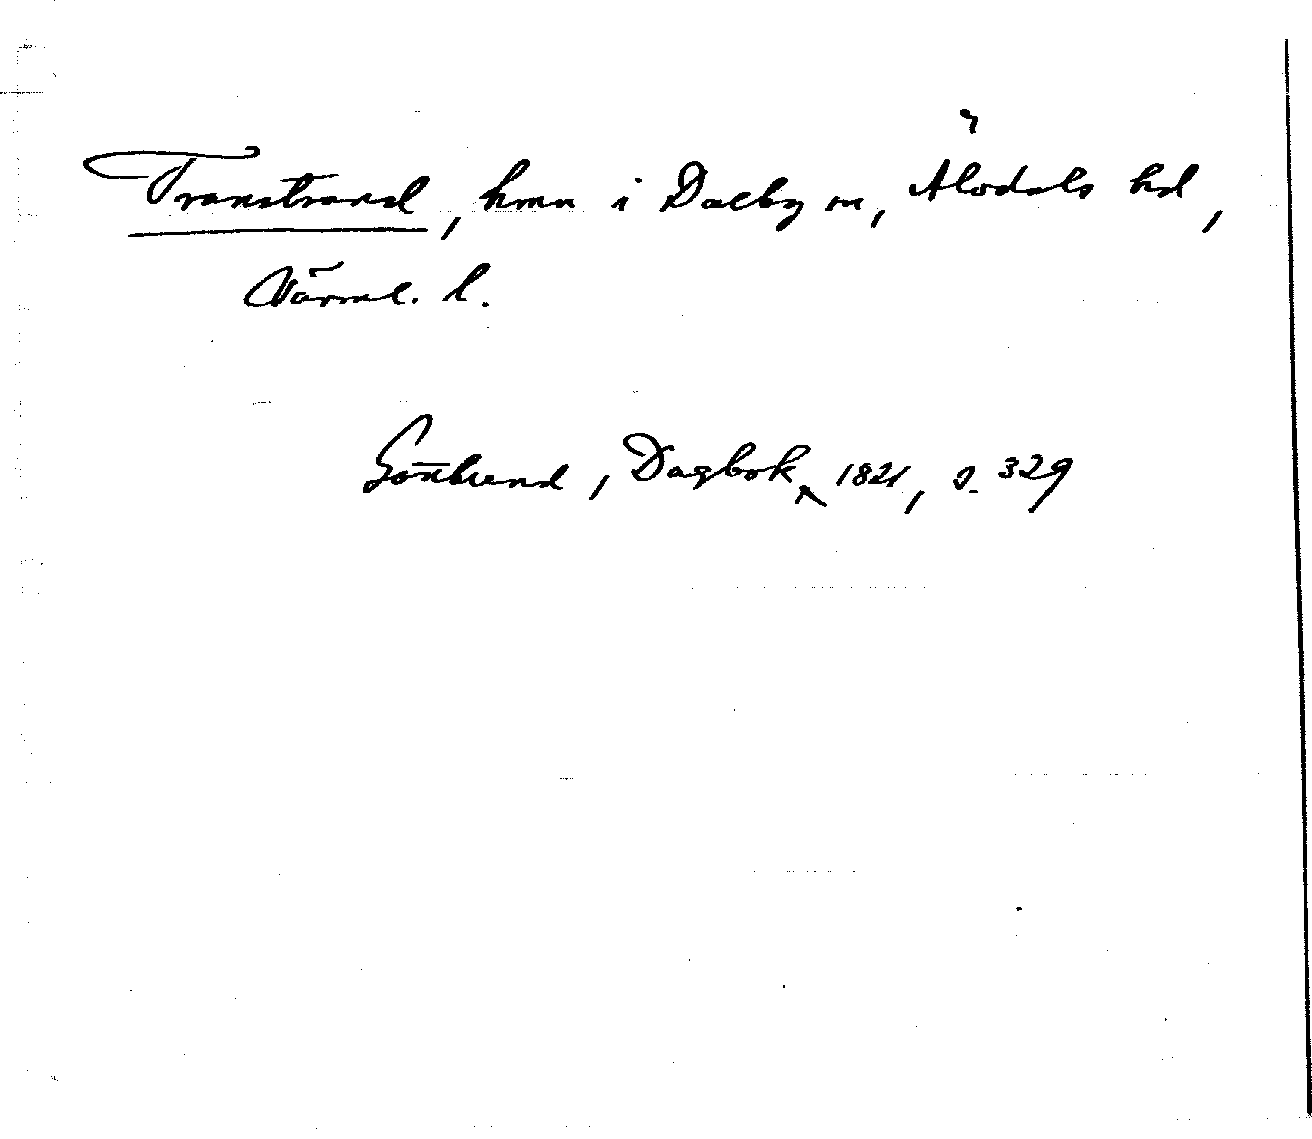 Transtrand, hmn i Dalby sn, Älvdals hd,
Värml. l.
Gottlund, Dagbok 1821, s. 329